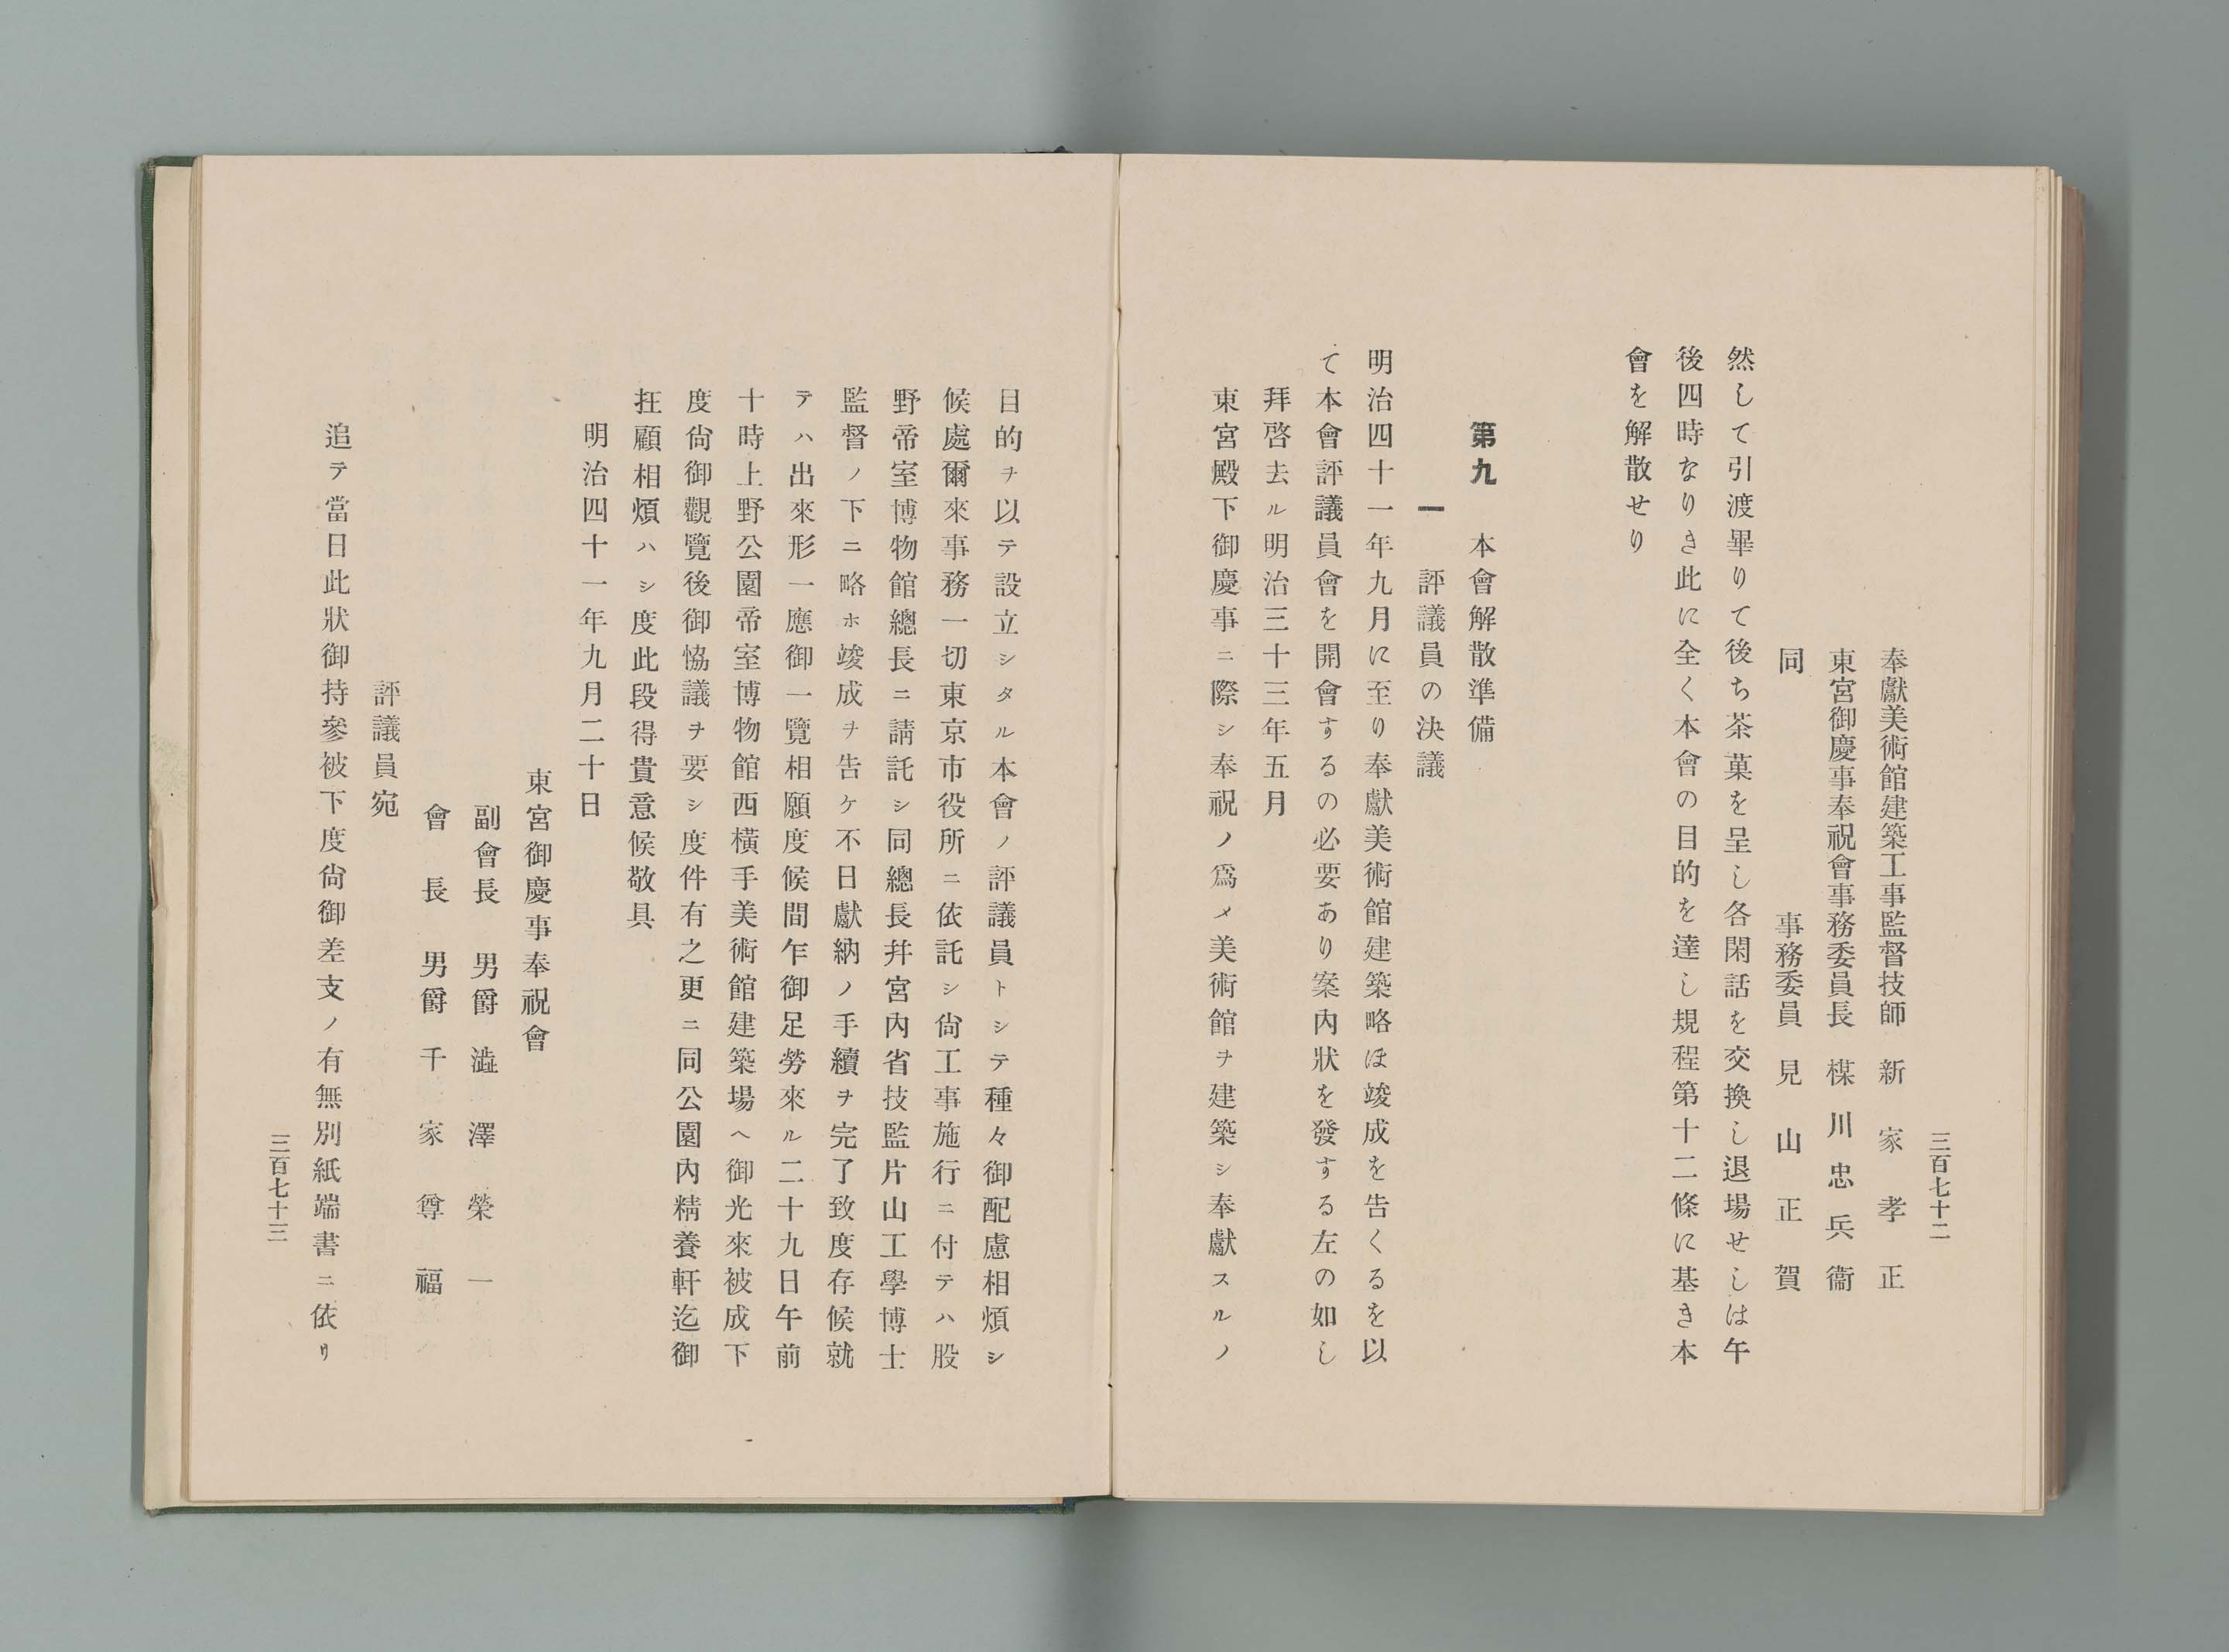 三百七十二
奉獻美術館建築工事監督技師　新家孝正
東宮御慶事奉祝會事務委員長　楳川忠兵衞
同　事務委員　見山正賀
然して引渡畢りて後ち茶菓を呈し各閑話を交換し退場せしは午
後四時なりき此に全く本會の目的を達し規程第十二條に基き本
會を解散せり
第九　本會解散準備
一　評議員の決議
明治四十一年九月に至り奉獻美術館建築略ほ竣成を告くるを以
て本會評議員會を開會するの必要あり案內狀を發する左の如し
拜啓去ル明治三十三年五月
東宮殿下御慶事ニ際シ奉祝ノ爲メ美術館ヲ建築シ奉獻スルノ
目的ヲ以テ設立シタル本會ノ評議員トシテ種々御配慮相煩シ
候處爾來事務一切東京市役所ニ依託シ尙工事施行ニ付テハ股
野帝室博物館總長ニ請託シ同總長幷宮內省技監片山工學博士
監督ノ下ニ略ホ竣成ヲ告ケ不日獻納ノ手續ヲ完了致度存候就
テハ出來形一應御一覽相願度候間乍御足勞來ル二十九日午前
十時上野公園帝室博物館西橫手美術館建築場ヘ御光來被成下
度尙御觀覽後御恊議ヲ要シ度件有之更ニ同公園內精養軒迄御
抂顧相煩ハシ度此段得貴意候敬具
明治四十一年九月二十日
東宮御慶事奉祝會
副會長　男爵　澁澤榮一
會長　男爵　千家尊福
評議員宛
追テ當日此狀御持參被下度尙御差支ノ有無別紙端書ニ依リ
三百七十三